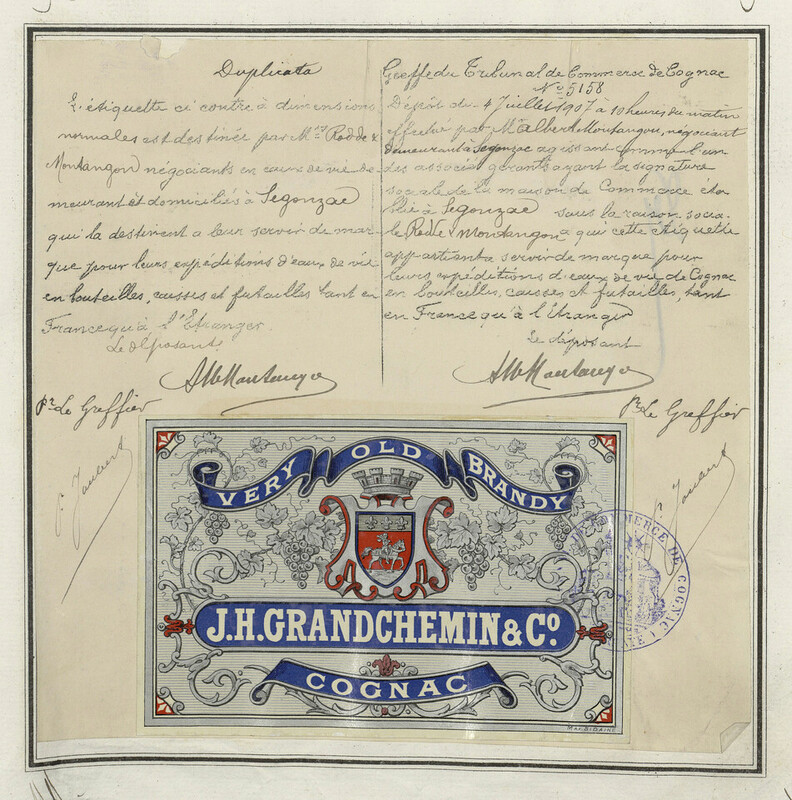 Duplicata
L'étiquette ci contre à dimensions
normales est destinée par Mrs Rodde &
Montangon négociants en eaux de vie de-
meurant et domiciliés à Segonzac
qui la destinent a leur servir de mar
que pour leurs expéditions d'eaux de vie
en bouteilles, caisses et futailles tant en
France qu'à l'Etranger.
Le déposant
AlbMontangon
Pr Le Greffier
Greffe du Tribunal de Commerce de Cognac
No 5158
Dépôt du 4 Juillet 1907 à 10 heures du matin
effectué par Mr Albert Montangon, négociant
demeurant à Segonzac agissant comme l'un
des associés gérants ayant la signature
sociale de la maison de Commerce éta
blie à Segonzac sous la raison socia-
le Rodde Montangon a qui cette étiquette
appartient a servir de marque pour
leurs expéditions d'eaux de vie de Cognac
en bouteilles, caisses et futailles, tant
en France qu'à l'Etranger
Le déposant
AlbMontangon
Pr Le Greffier
VERY OLD BRANDY
J.H.GRANDCHEMIN & Co
COGNAC
COMMERCE DE COGNAC